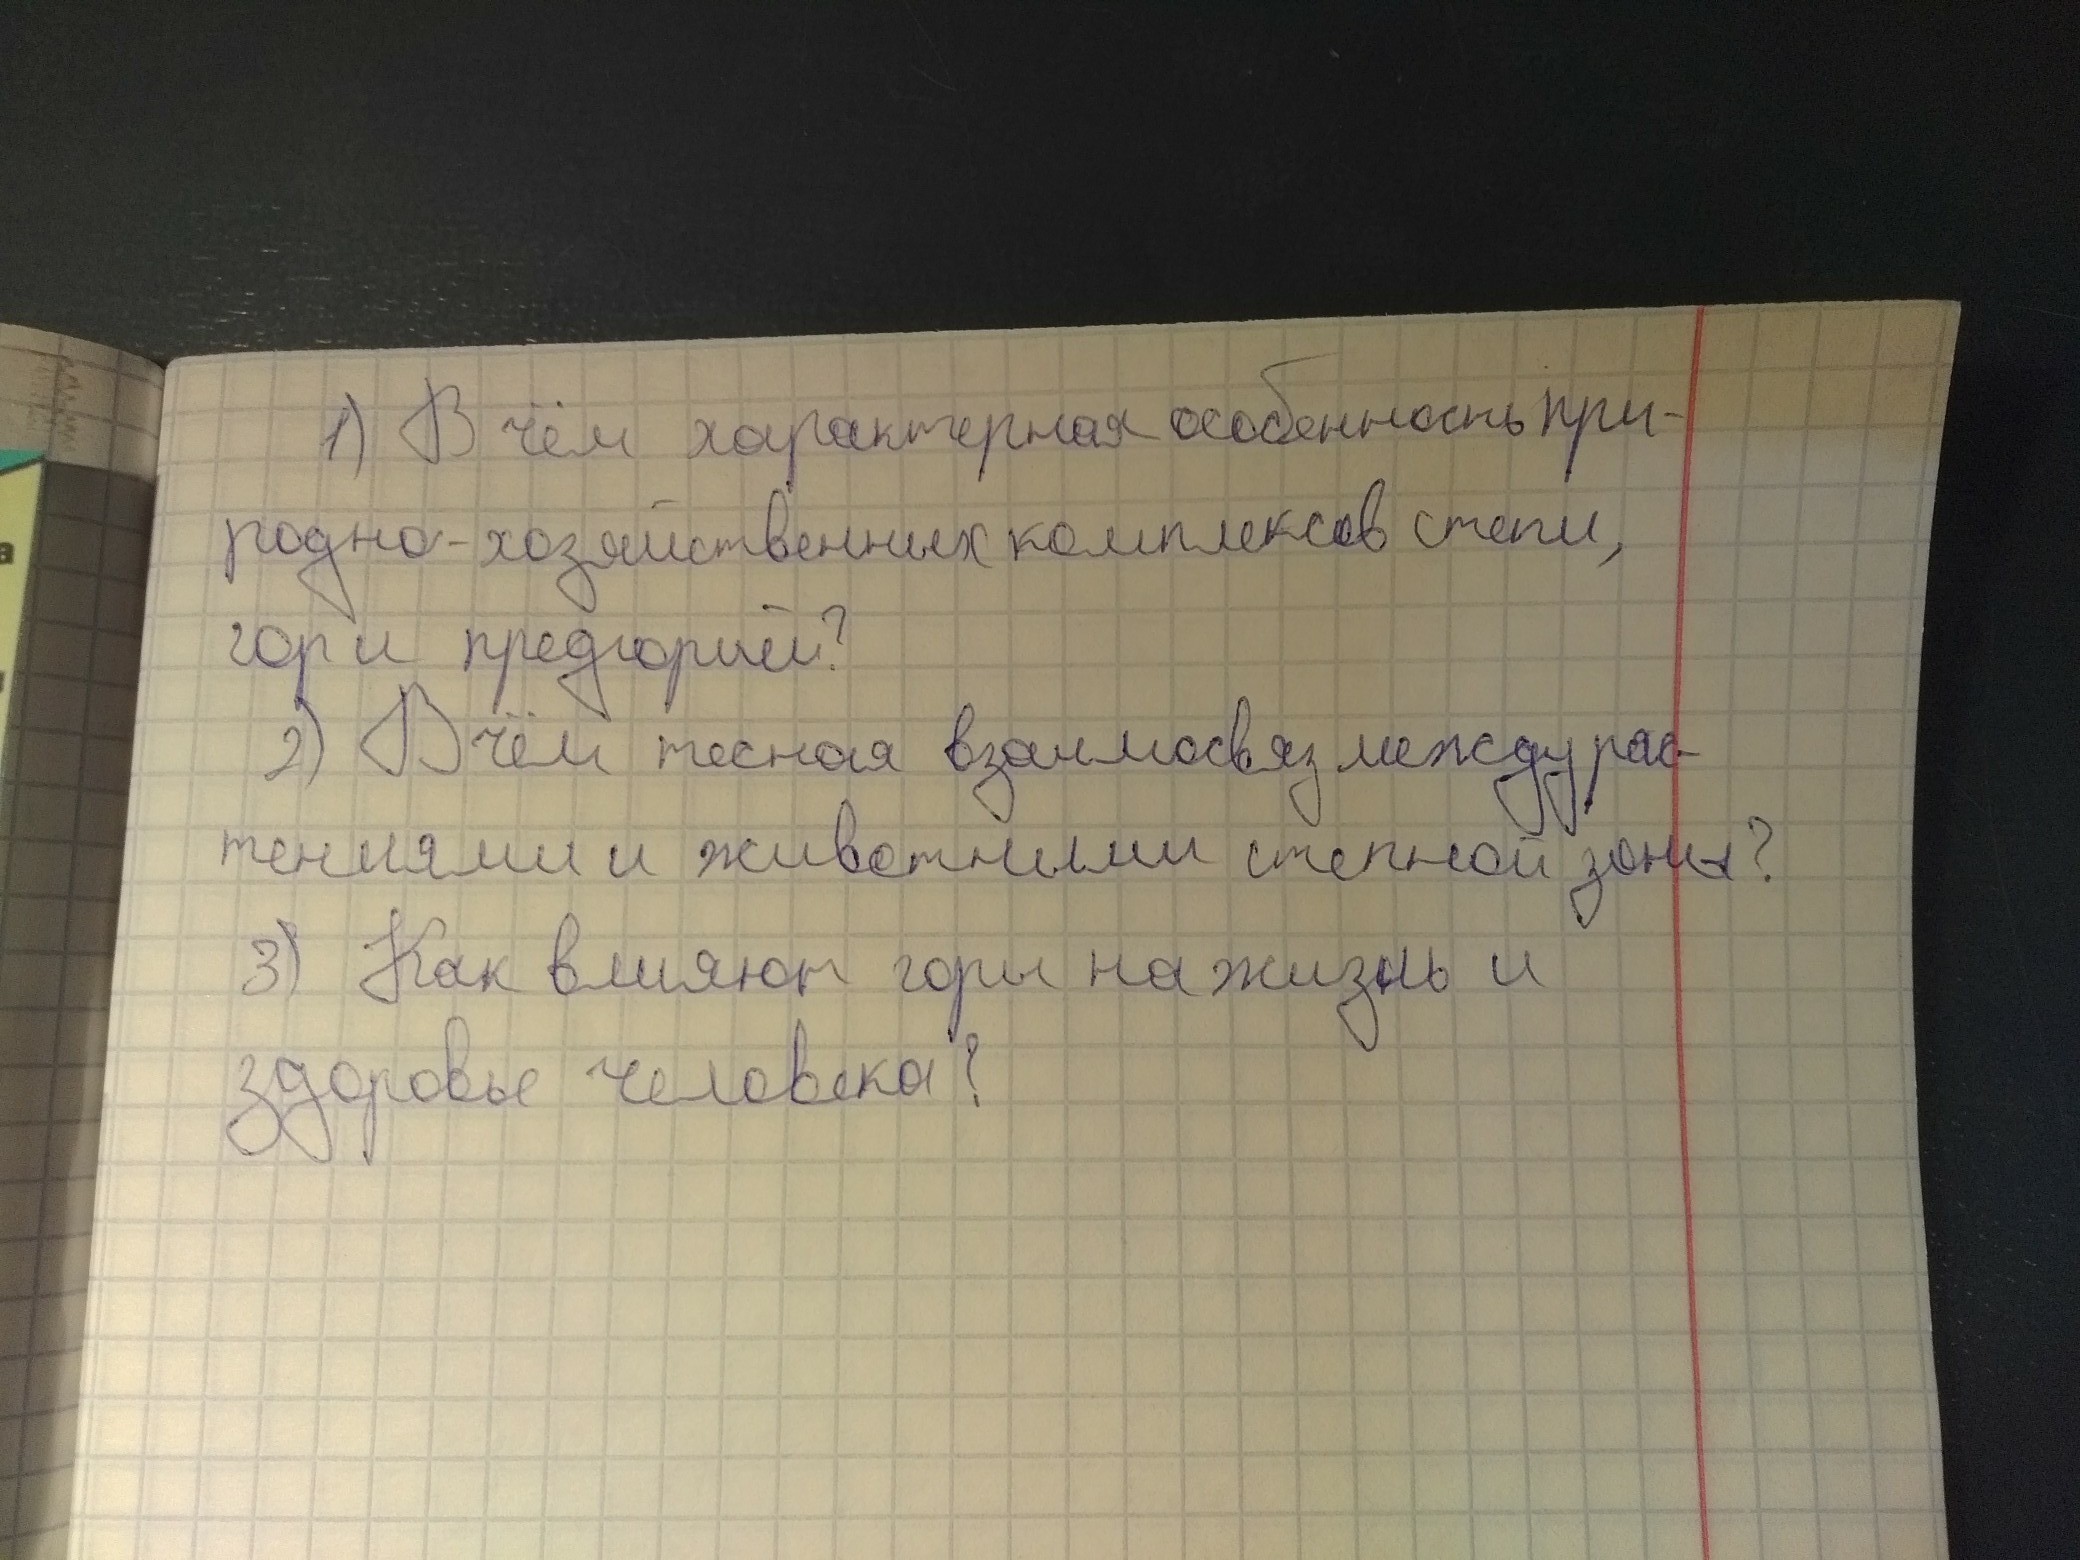 1) В чём характерная особенность при-
родно-хозяйственных комплексов степи,
гор и предгорий?
2) В чём тесная взаимосвяз между рас-
тениями и животными степной зоны?
3) Как влияют горы на жизнь и
здоровье человека?
а